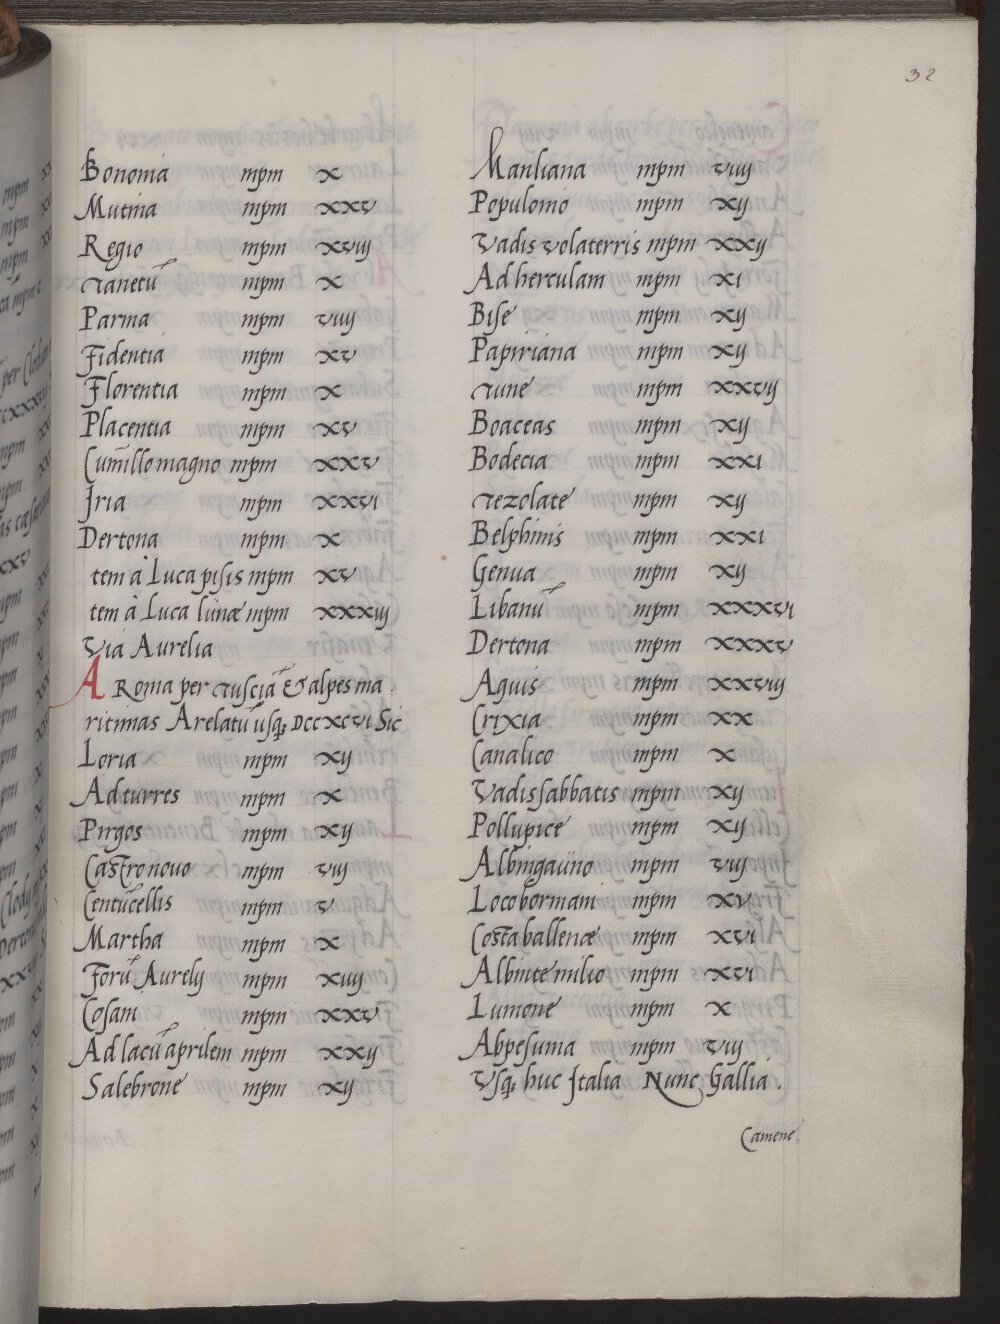 32
Bononia mpm x
Mutina mpm xxv
Regio mpm xviij
Tanetū mpm x
Parma mpm viij
Fidentia mpm xv
Florentia mpm x
Placentia mpm xv
Cumillo magno mpm xxv
Iria mpm xxvi
Dertona mpm x
tem à Luca pisis mpm xv
tem à Luca lunæ mpm xxxiij
Via Aurelia
A Roma per Tusciā & alpes ma
ritimas Arelatū usq; Dccxcvi Sic
Loria mpm xij
Ad turres mpm x
Pirgos mpm xij
Castro nouo mpm viij
Centūcellis mpm v
Martha mpm x
Forū Aurelij mpm xiiij
Cosam mpm xxv
Ad lacū aprilem mpm xxij
Salebrone mpm xij
Manliana mpm viiij
Populonio mpm xij
Vadis volaterris mpm xxij
Ad herculam mpm xi
Bise mpm xij
Papiriana mpm xij
Lune mpm xxvij
Boaceas mpm xij
Bodecia mpm xxi
Tezolate mpm xij
Belphinis mpm xxi
Genua mpm xij
Libanū mpm xxxvi
Dertona mpm xxxv
Aquis mpm xxviij
Crixia mpm xx
Canalico mpm x
Vadis sabbatis mpm xij
Pollupice mpm xij
Albingauno mpm viij
Loco bormani mpm xv
Costa ballenæ mpm xvi
Albintemilio mpm xvi
Lumone mpm x
Alpesuma mpm viij
Vsq; huc Italia Nunc Gallia .
Camene